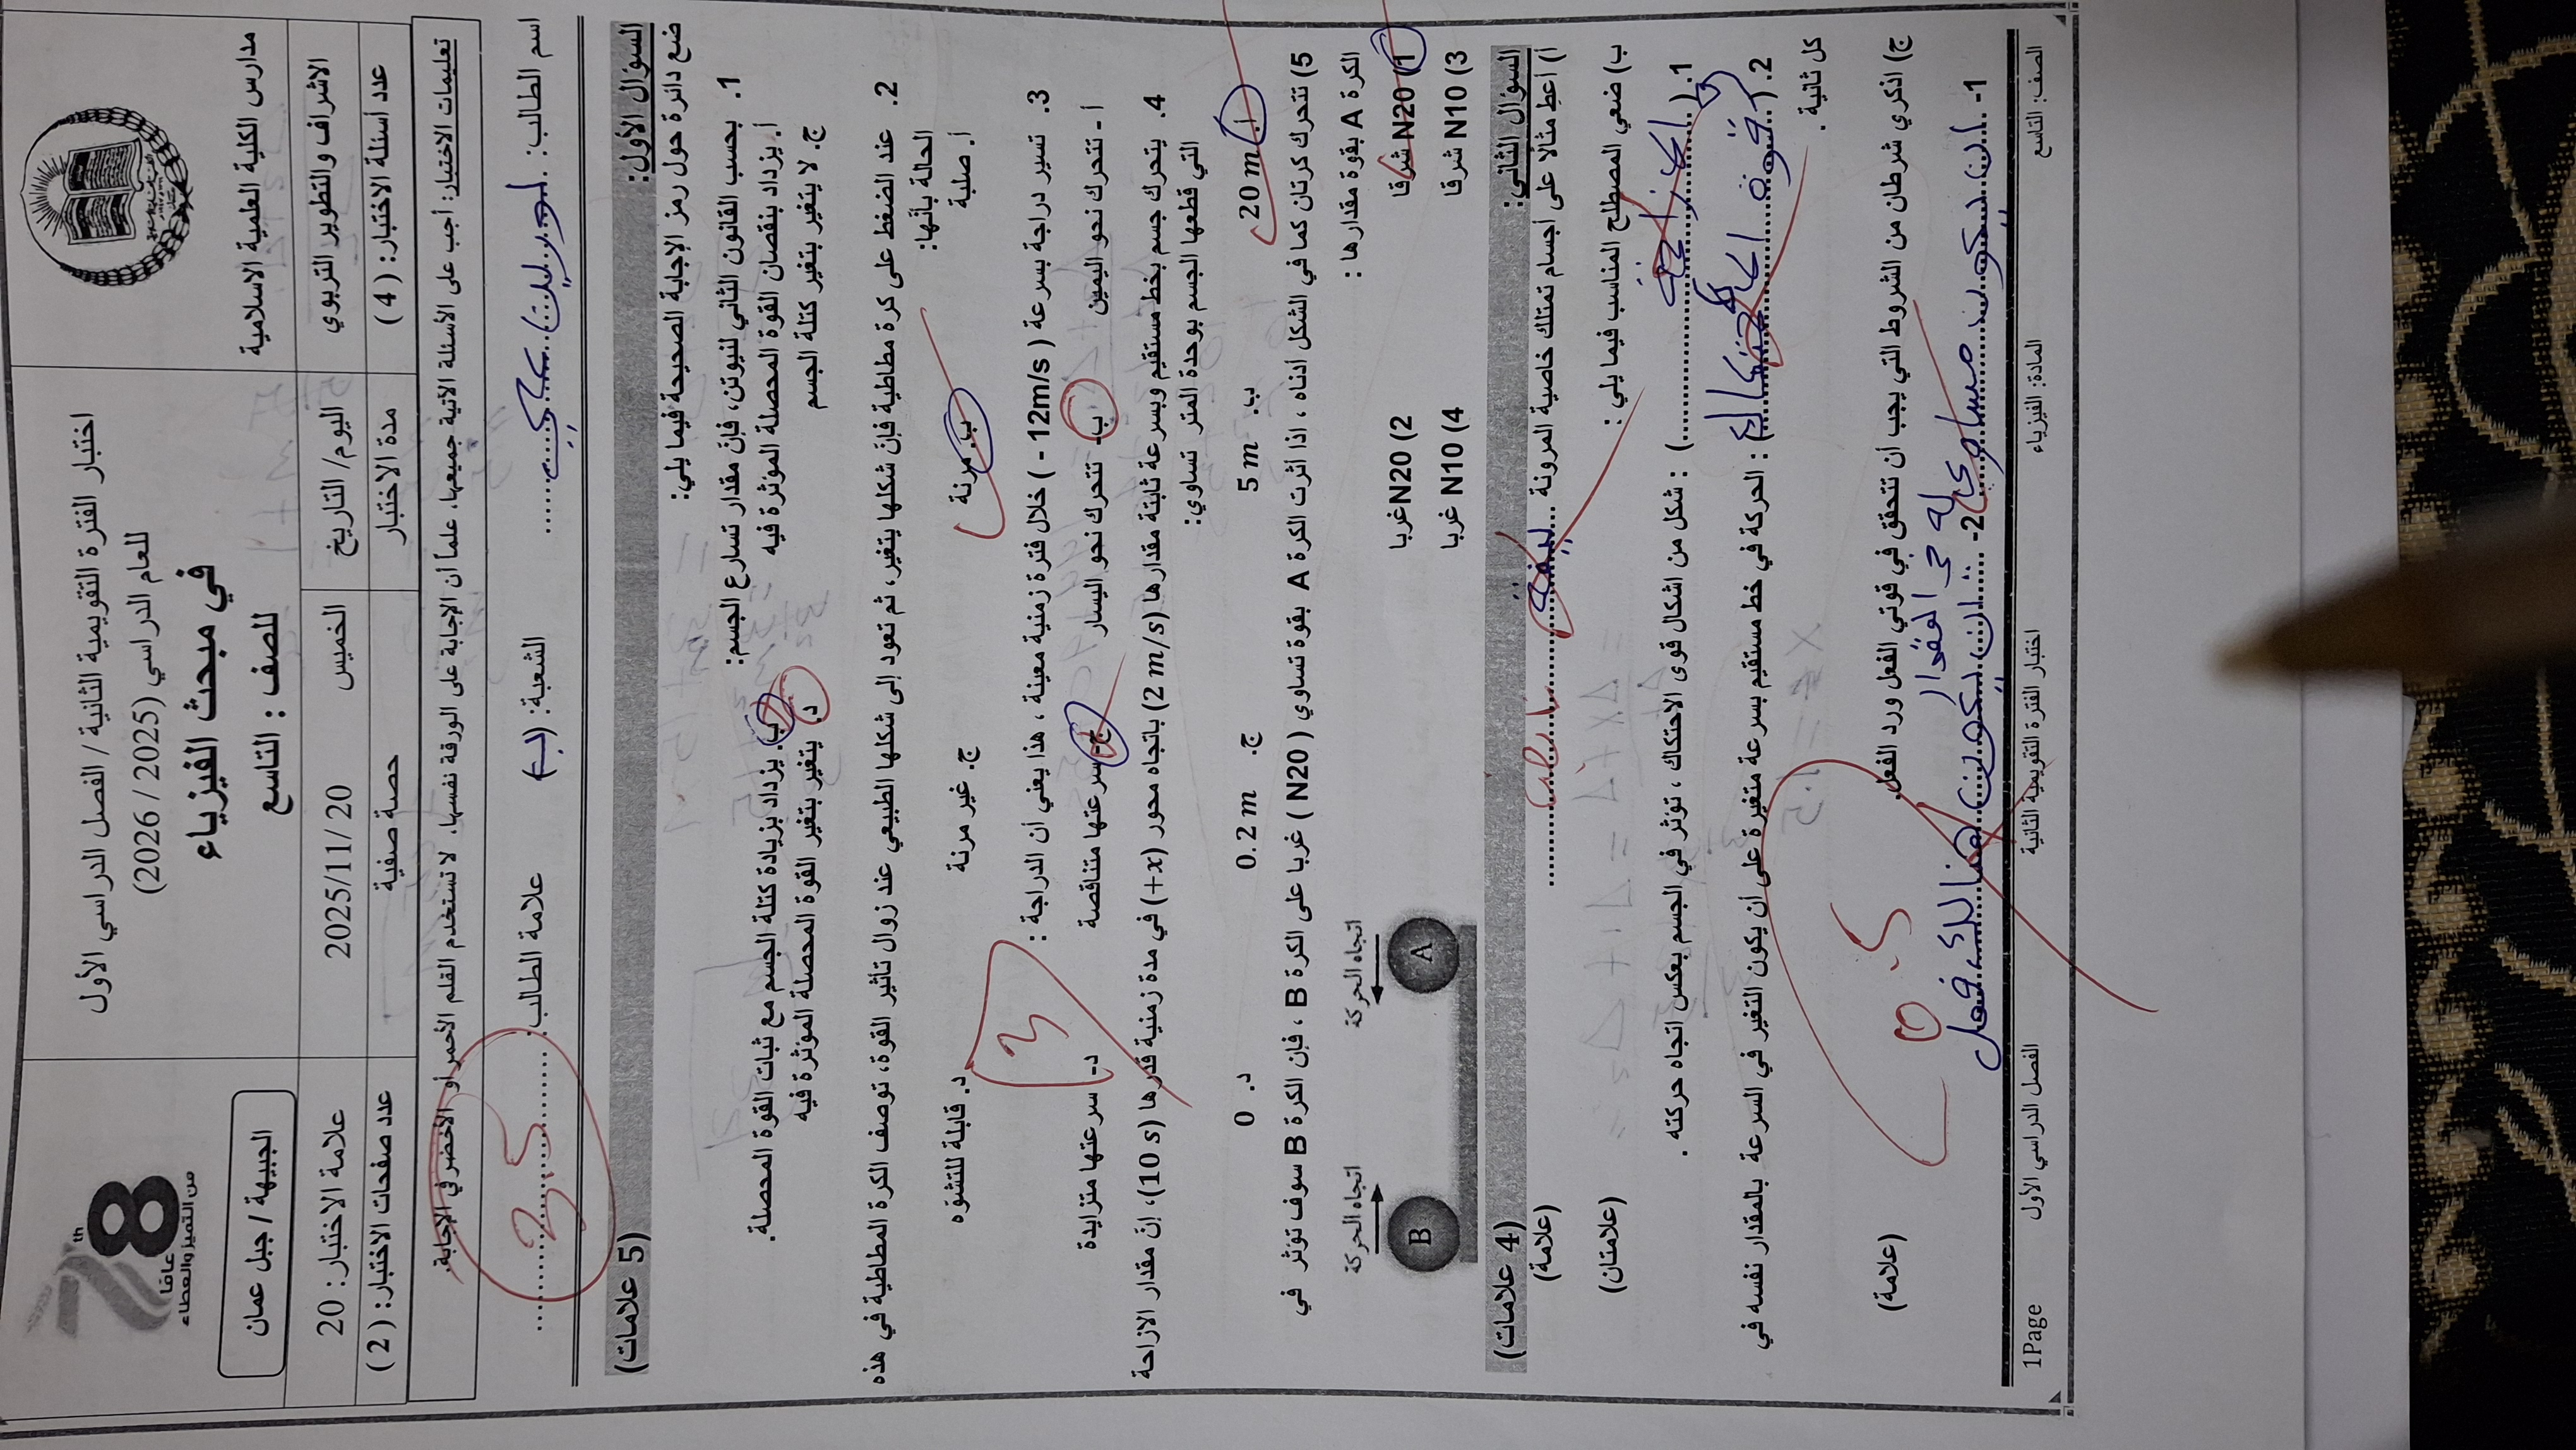 مدارس الكلية العلمية الاسلامية
الاشراف والتطوير التربوي
عدد أسئلة الاختبار: ( 4 )
اختبار الفترة التقويمية الثانية / الفصل الدراسي الأول
للعام الدراسي (2025 / 2026)
في مبحث الفيزياء
للصف : التاسع
اليوم/ التاريخ
الخميس
2025/11/ 20
مدة الاختبار
حصة صفية
78 th
عامًا
من التميز والعطاء
الجبيهة / جبل عمان
علامة الاختبار: 20
عدد صفحات الاختبار: ( 2 )
تعليمات الاختبار: أجب على الأسئلة الآتية جميعها، علماً أن الإجابة على الورقة نفسها. لا تستخدم القلم الأحمر أو الأخضر في الإجابة.
اسم الطالب: الشعبة: (ب) علامة الطالب: 3.5
السؤال الأول: (5 علامات)
ضع دائرة حول رمز الإجابة الصحيحة فيما يلي:
1. بحسب القانون الثاني لنيوتن، فإن مقدار تسارع الجسم:
أ. يزداد بنقصان القوة المحصلة المؤثرة فيه ب. يزداد بزيادة كتلة الجسم مع ثبات القوة المحصلة.
ج. لا يتغير بتغير كتلة الجسم د. يتغير بتغير القوة المحصلة المؤثرة فيه
2. عند الضغط على كرة مطاطية فإن شكلها يتغير، ثم تعود إلى شكلها الطبيعي عند زوال تأثير القوة، توصف الكرة المطاطية في هذه
الحالة بأنها:
أ. صلبة ب. مرنة ج. غير مرنة د. قابلة للتشوه
3. تسير دراجة بسرعة ( 12m/s - ) خلال فترة زمنية معينة ، هذا يعني أن الدراجة :
أ - تتحرك نحو اليمين ب- تتحرك نحو اليسار ج- سرعتها متناقصة د- سرعتها متزايدة
3
4. يتحرك جسم بخط مستقيم وبسرعة ثابتة مقدارها (2 m/s) باتجاه محور (+x) في مدة زمنية قدرها (10 s)، إن مقدار الازاحة
التي قطعها الجسم بوحدة المتر تساوي:
أ. 20 m ب. 5 m ج. 0.2 m د. 0
5) تتحرك كرتان كما في الشكل أدناه ، اذا أثرت الكرة A بقوة تساوي ( N20 ) غربا على الكرة B ، فإن الكرة B سوف تؤثر في
الكرة A بقوة مقدارها :
1) N20 شرقا 2) N20غربا
3) N10 شرقا 4) N10 غربا
اتجاه الحركة
اتجاه الحركة
B
A
السؤال الثاني: (4 علامات)
أ) أعطِ مثالًا على أجسام تمتلك خاصية المرونة (علامة)
ب) ضعي المصطلح المناسب فيما يلي : (علامتان)
1. ( ) : شكل من اشكال قوى الاحتكاك ، تؤثر في الجسم بعكس اتجاه حركته .
2. ( قوة ) : الحركة في خط مستقيم بسرعة متغيرة على أن يكون التغير في السرعة بالمقدار نفسه في
كل ثانية .
0.5
ج) اذكري شرطان من الشروط التي يجب أن تتحقق في قوتي الفعل ورد الفعل. (علامة)
1- ان يكون مساوي له في المقدار 2- ان يكون هنالك فعل
الصف: التاسع المادة: الفيزياء اختبار الفترة التقويمية الثانية الفصل الدراسي الأول 1Page